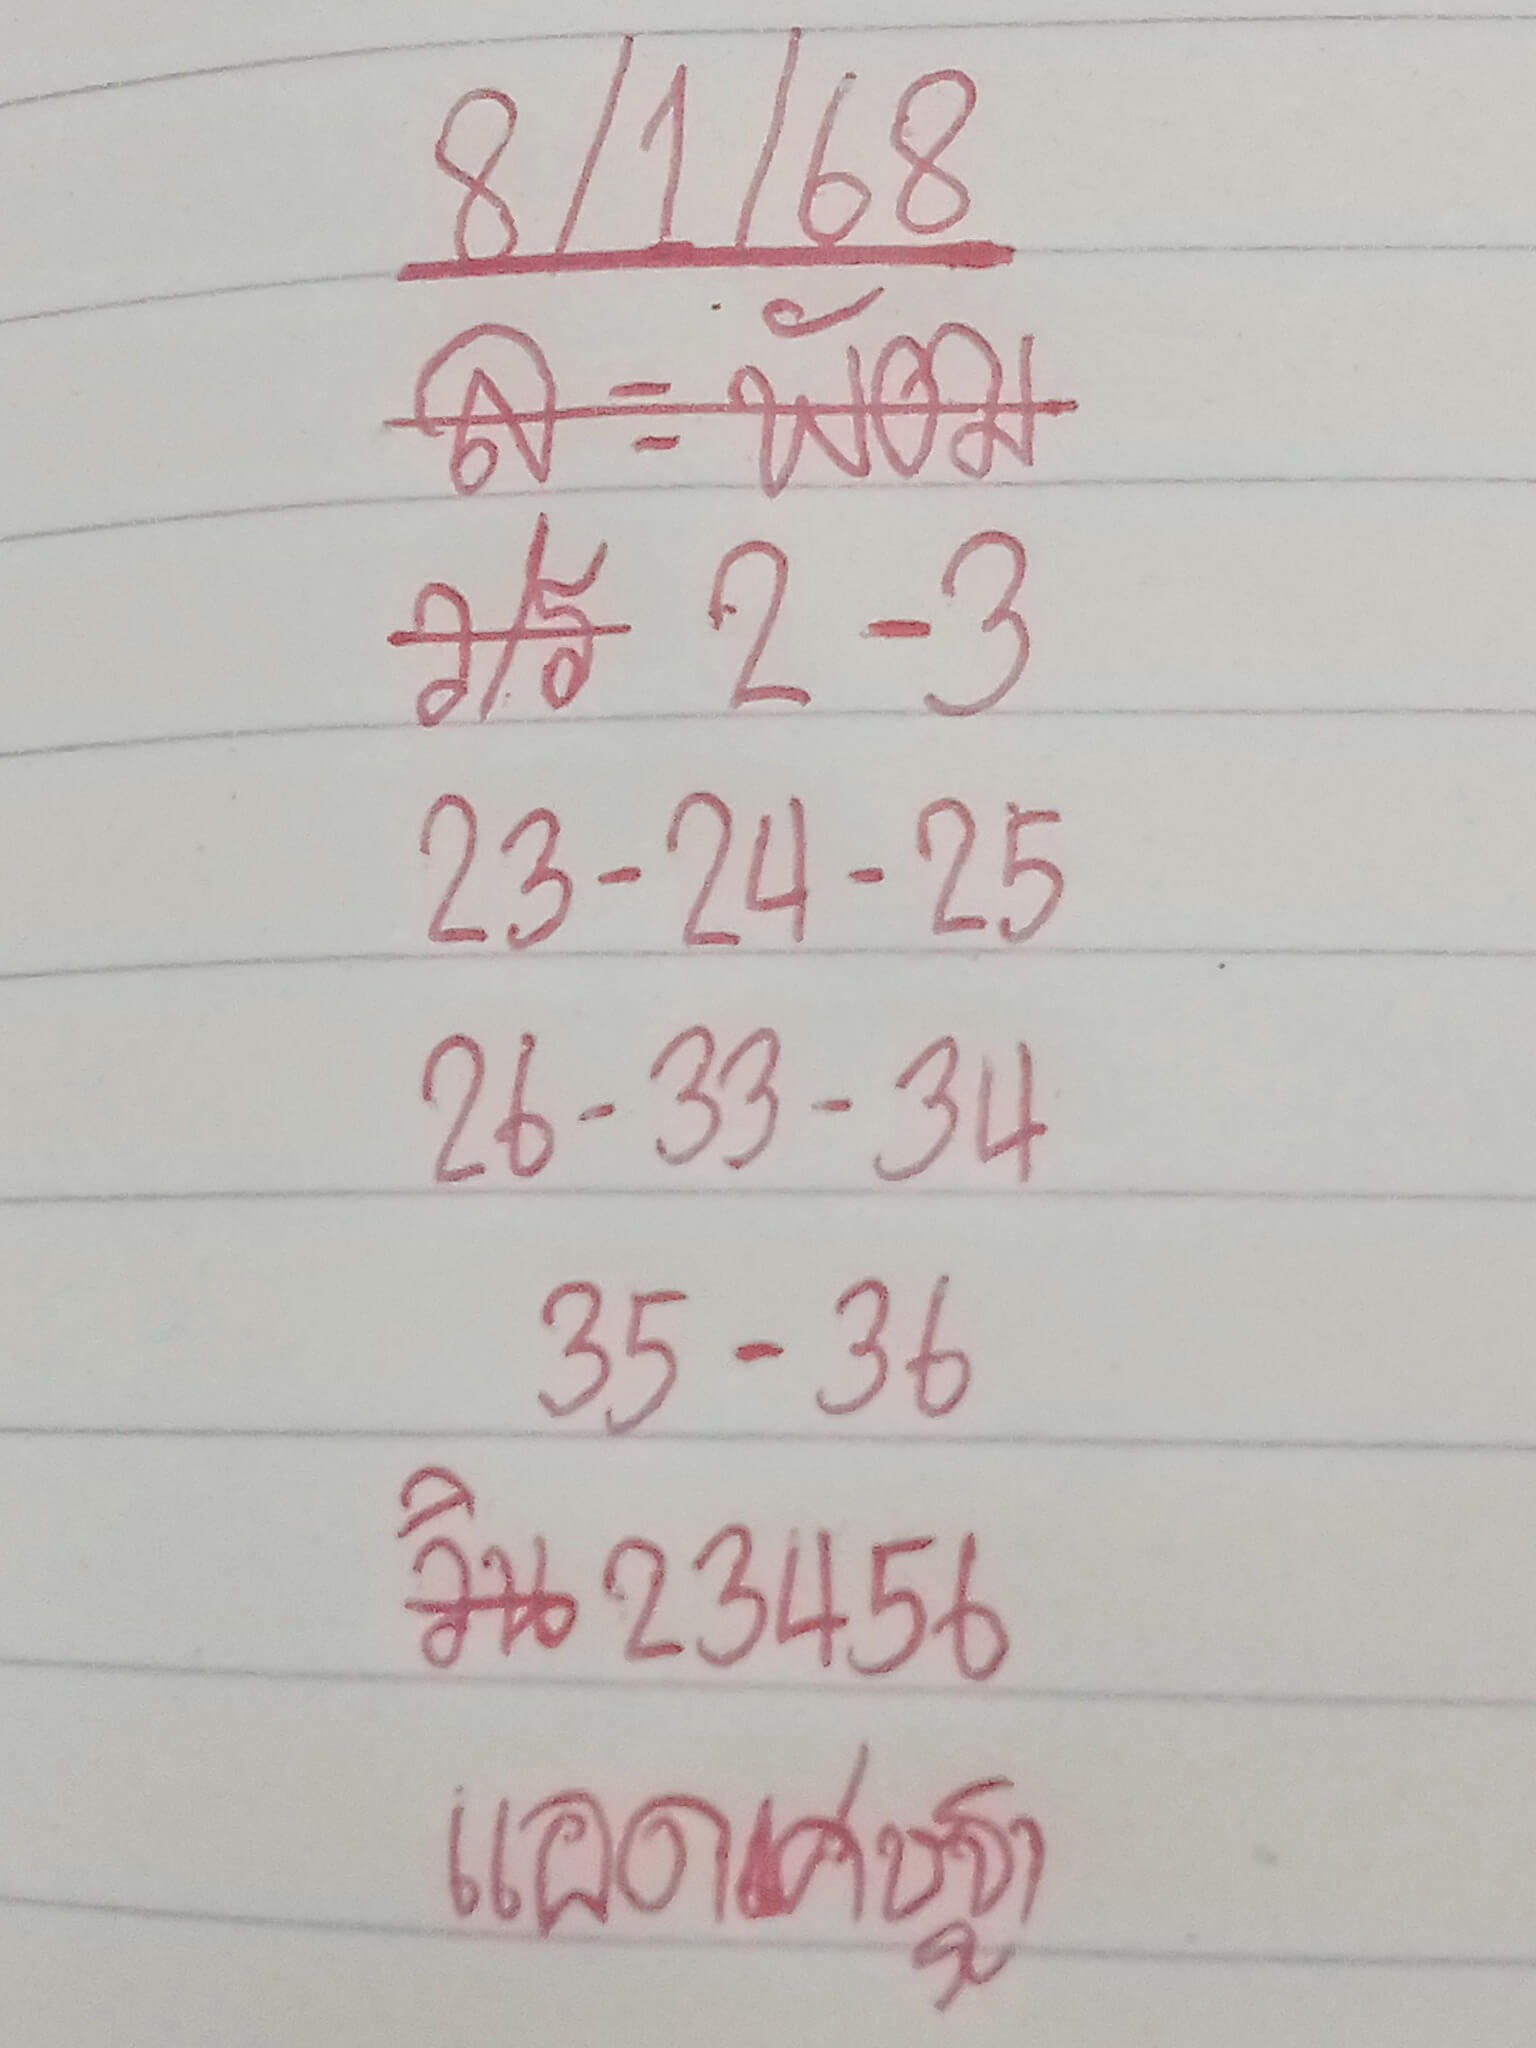 8/1/68
ล = พังงม
ว/ร 2 - 3
23 - 24 - 25
26 - 33 - 34
35 - 36
วิน 23456
แอดเศษฐา